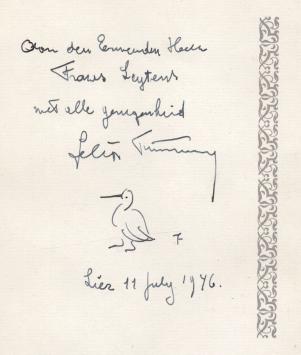 Aan den Eerwenden Heer
Frans Leytens
met alle genegenheid
Felix Timmermans
7
Lier 11 July 1946.